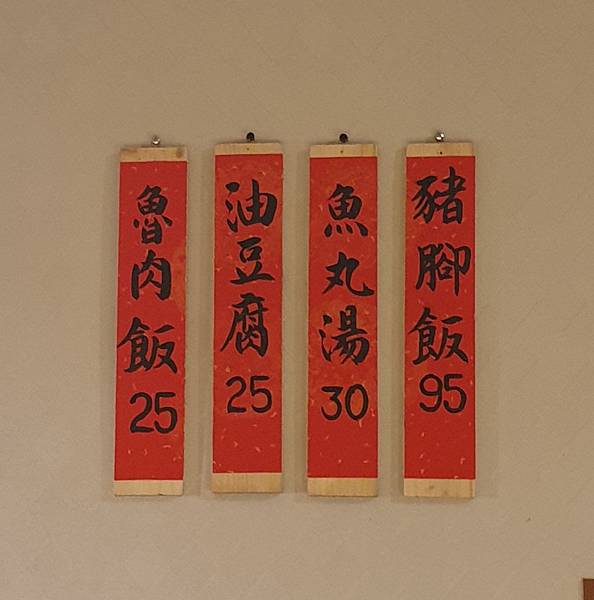 豬腳飯 95
魚丸湯 30
油豆腐 25
魯肉飯 25